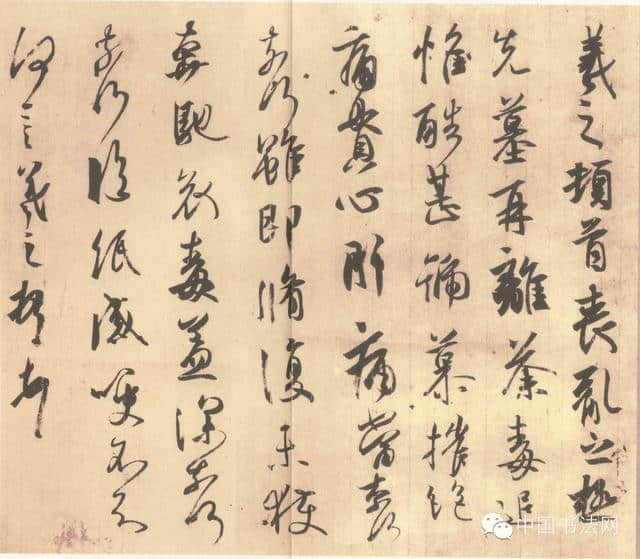 羲之頓首喪亂之極
先墓再離荼毒追
惟酷甚號慕摧絶
痛貫心肝痛當奈何
奈何雖即脩復未獲
奔馳哀毒益深奈何
奈何臨紙感哽不知
何言羲之頓首
中国书法网